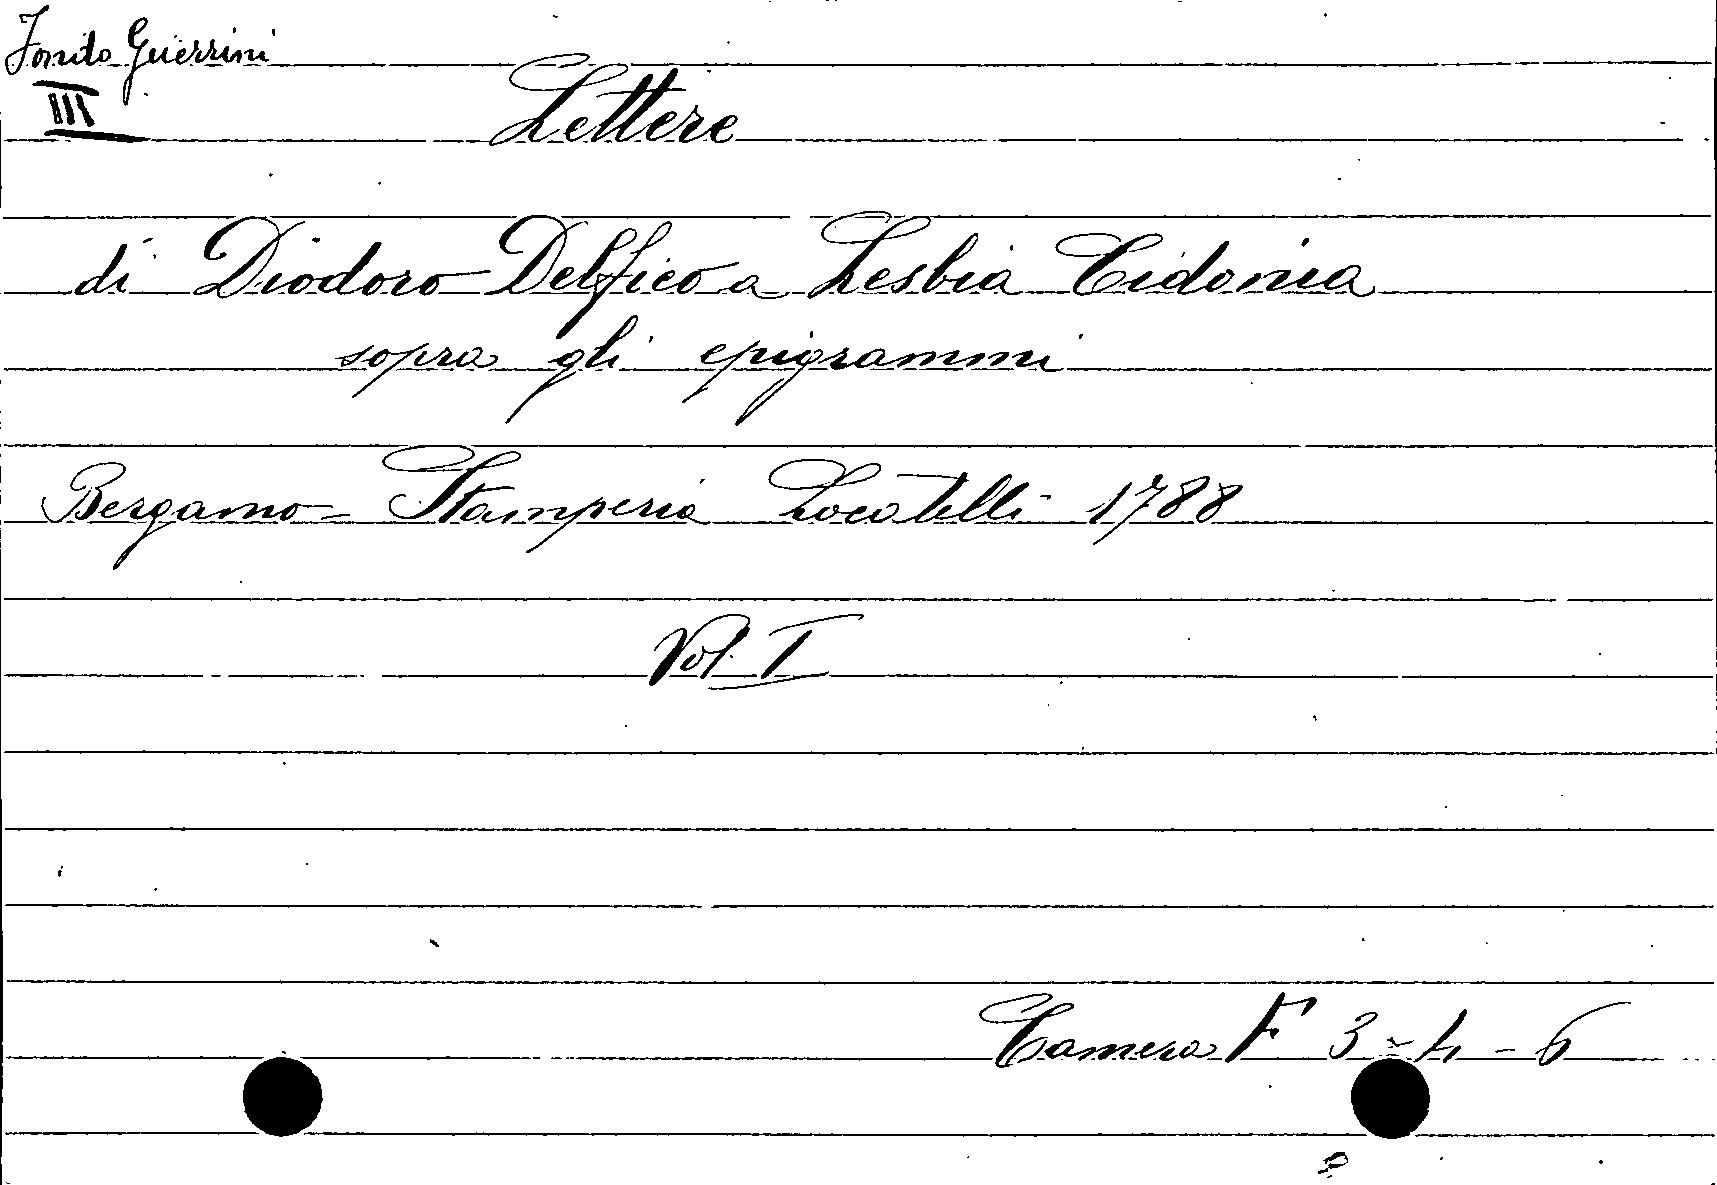 Fondo Guerrini
III
Lettere
di Diodoro Delfico a Lesbia Cidonia
sopra gli epigrammi
Bergamo - Stamperia Locatelli 1788
Vol. I
Camera F 3 - 4 - 6